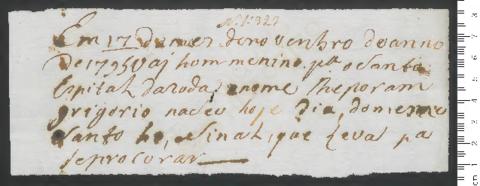 Nº 1:327
Em 17 do mes de novenbro do anno
de 1795 vai hom menino pª o Santo
Espital da Roda e nome lhe poram
grigorio naceu hoje dia do mesmo
Santo he o sinal que leva pa
se procurar